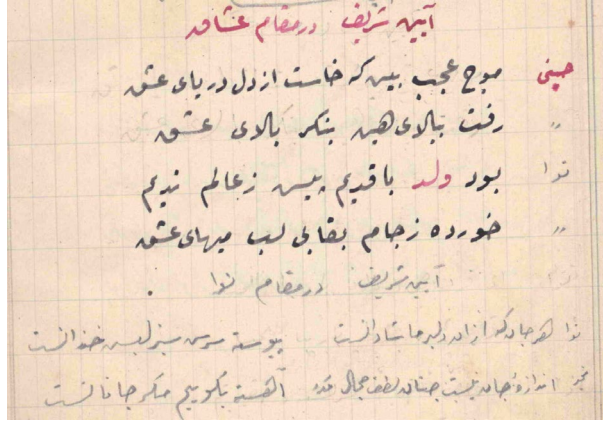 آیین شریف در مقام عشاق
حسینی موج عجب بین که خاست از دل دریای عشق
〃 رفت ببالای هین بنکر بالای عشق
نوا بود ولد با قدیم پیش ز عالم ندیم
〃 خورده ز جام بقا بی لب میهای عشق
آیین شریف در مقام نوا
نوا هر جان که از آن دلبر ما شادانست پیوسته سرش سبز لبش خندانست
اندازهٔ جان نیست چنان لطف جمال آهسته بکوییم مکر جانانست